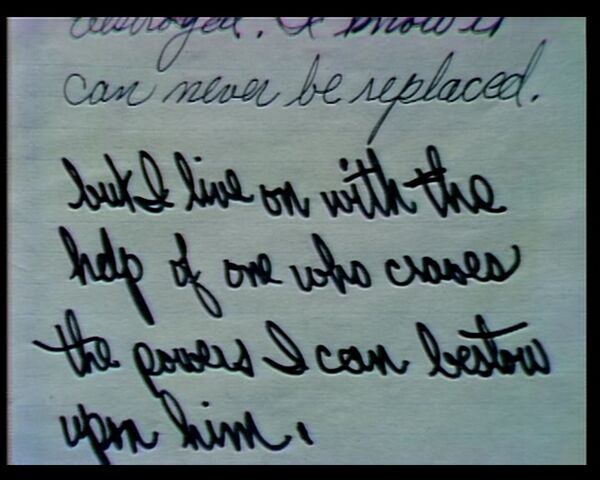 destroyed. I know it
can never be replaced.
but I live on with the
help of one who craves
the powers I can bestow
upon him.